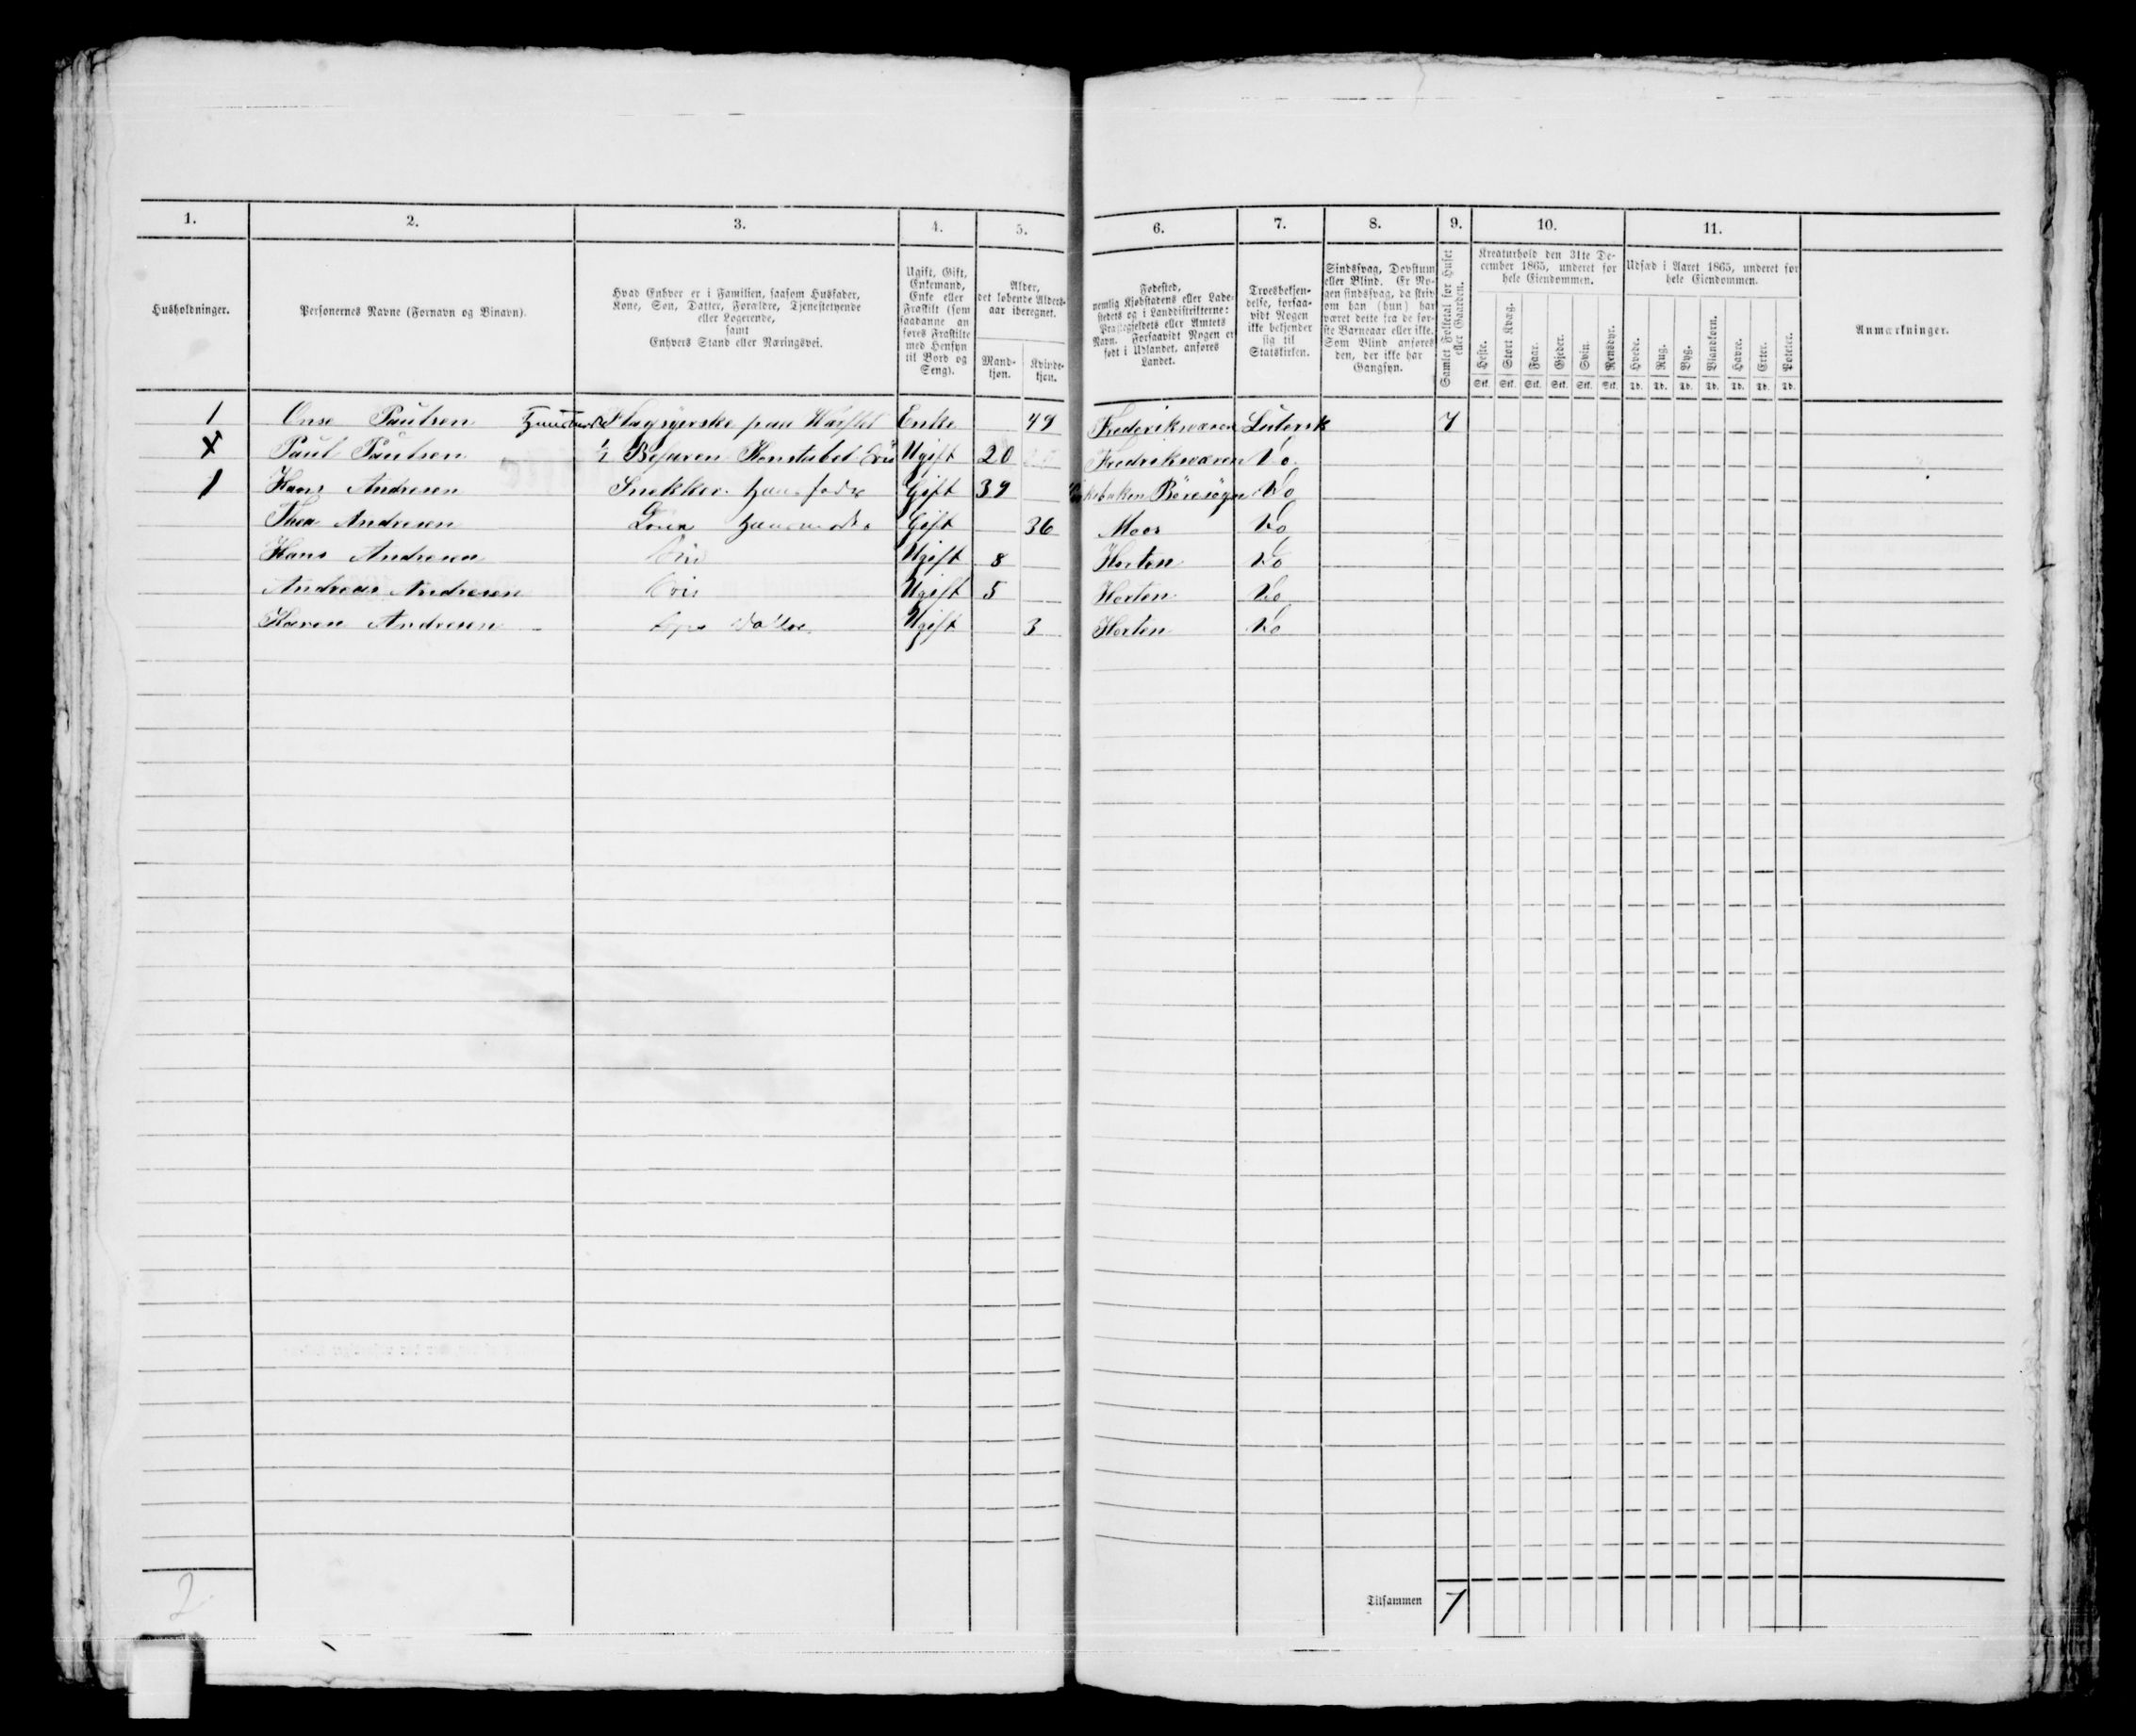 1. 2. 3. 4. 5. 6. 7. 8. 9. 10. 11.
Husholdninger.
Personernes Navne (Fornavn og Binavn).
Hvad Enhver er i Familien, saasom Husfader,
Kone, Søn, Datter, Forældre, Tjenestetyende
eller Logerende,
samt
Enhvers Stand eller Næringsvei.
Ugift, Gift,
Enkemand,
Enke eller
Fraskilt (som
saadanne an
føres Fraskilte
med Hensyn
til Bord og
Seng).
Alder,
det løbende Alders-
aar iberegnet.
Mand-
kjøn.
Kvinde-
kjøn.
Fødested,
nemlig Kjøbstadens eller Lade-
stedets og i Landdistrikterne:
Præstegjeldets eller Amtets
Navn. Forsaavidt Nogen er
født i Udlandet, anføres
Landet.
Troesbekjen-
delse, forsaa-
vidt Nogen
ikke bekjender
sig til
Statskirken.
Sindssvag, Døvstum
eller Blind. Er No-
gen sindssvag, da skriv
om han (hun) har
været dette fra de før-
ste Barneaar eller ikke.
Som Blind anføres
den, der ikke har
Gangsyn.
Samlet Folketal for Huset
eller Gaarden.
Kreaturhold den 31te De-
cember 1865, underet for
hele Eiendommen.
Heste.
Stort Kvæg.
Faar.
Gjeder.
Svin.
Rensdyr.
Stk. Stk. Stk. Stk. Stk. Stk.
Udsæd i Aaret 1865, underet for
hele Eiendommen.
Hvede.
Rug.
Byg.
Blandkorn.
Havre.
Erter.
Poteter.
Td. Td. Td. Td. Td. Td. Td.
Anmærkninger.
1 Paulsen paa Enke 49 Frederiksværn Lutersk 7
X Paul Paulsen 1/2 Befaren Konstabel Ugift 20 Fredriksværn Do
1 Hans Andresen Snekker Husfader Gift 39 Do
Thea Andresen Husmoder Gift 36 Moss Do
Hans Andresen Ugift 8 Horten Do
Andreas Andresen Ugift 5 Horten Do
Karen Andresen Ugift 3 Horten Do
2
Tilsammen 7